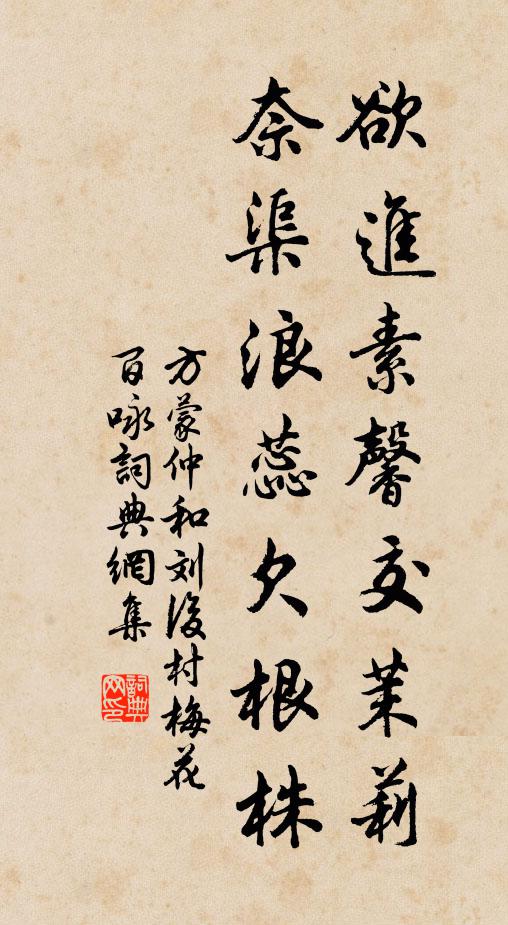 欲進素馨交茉莉
奈渠浪蕊欠根株
方蒙仲和刘後村梅花
百咏詞典網集
詞典网印